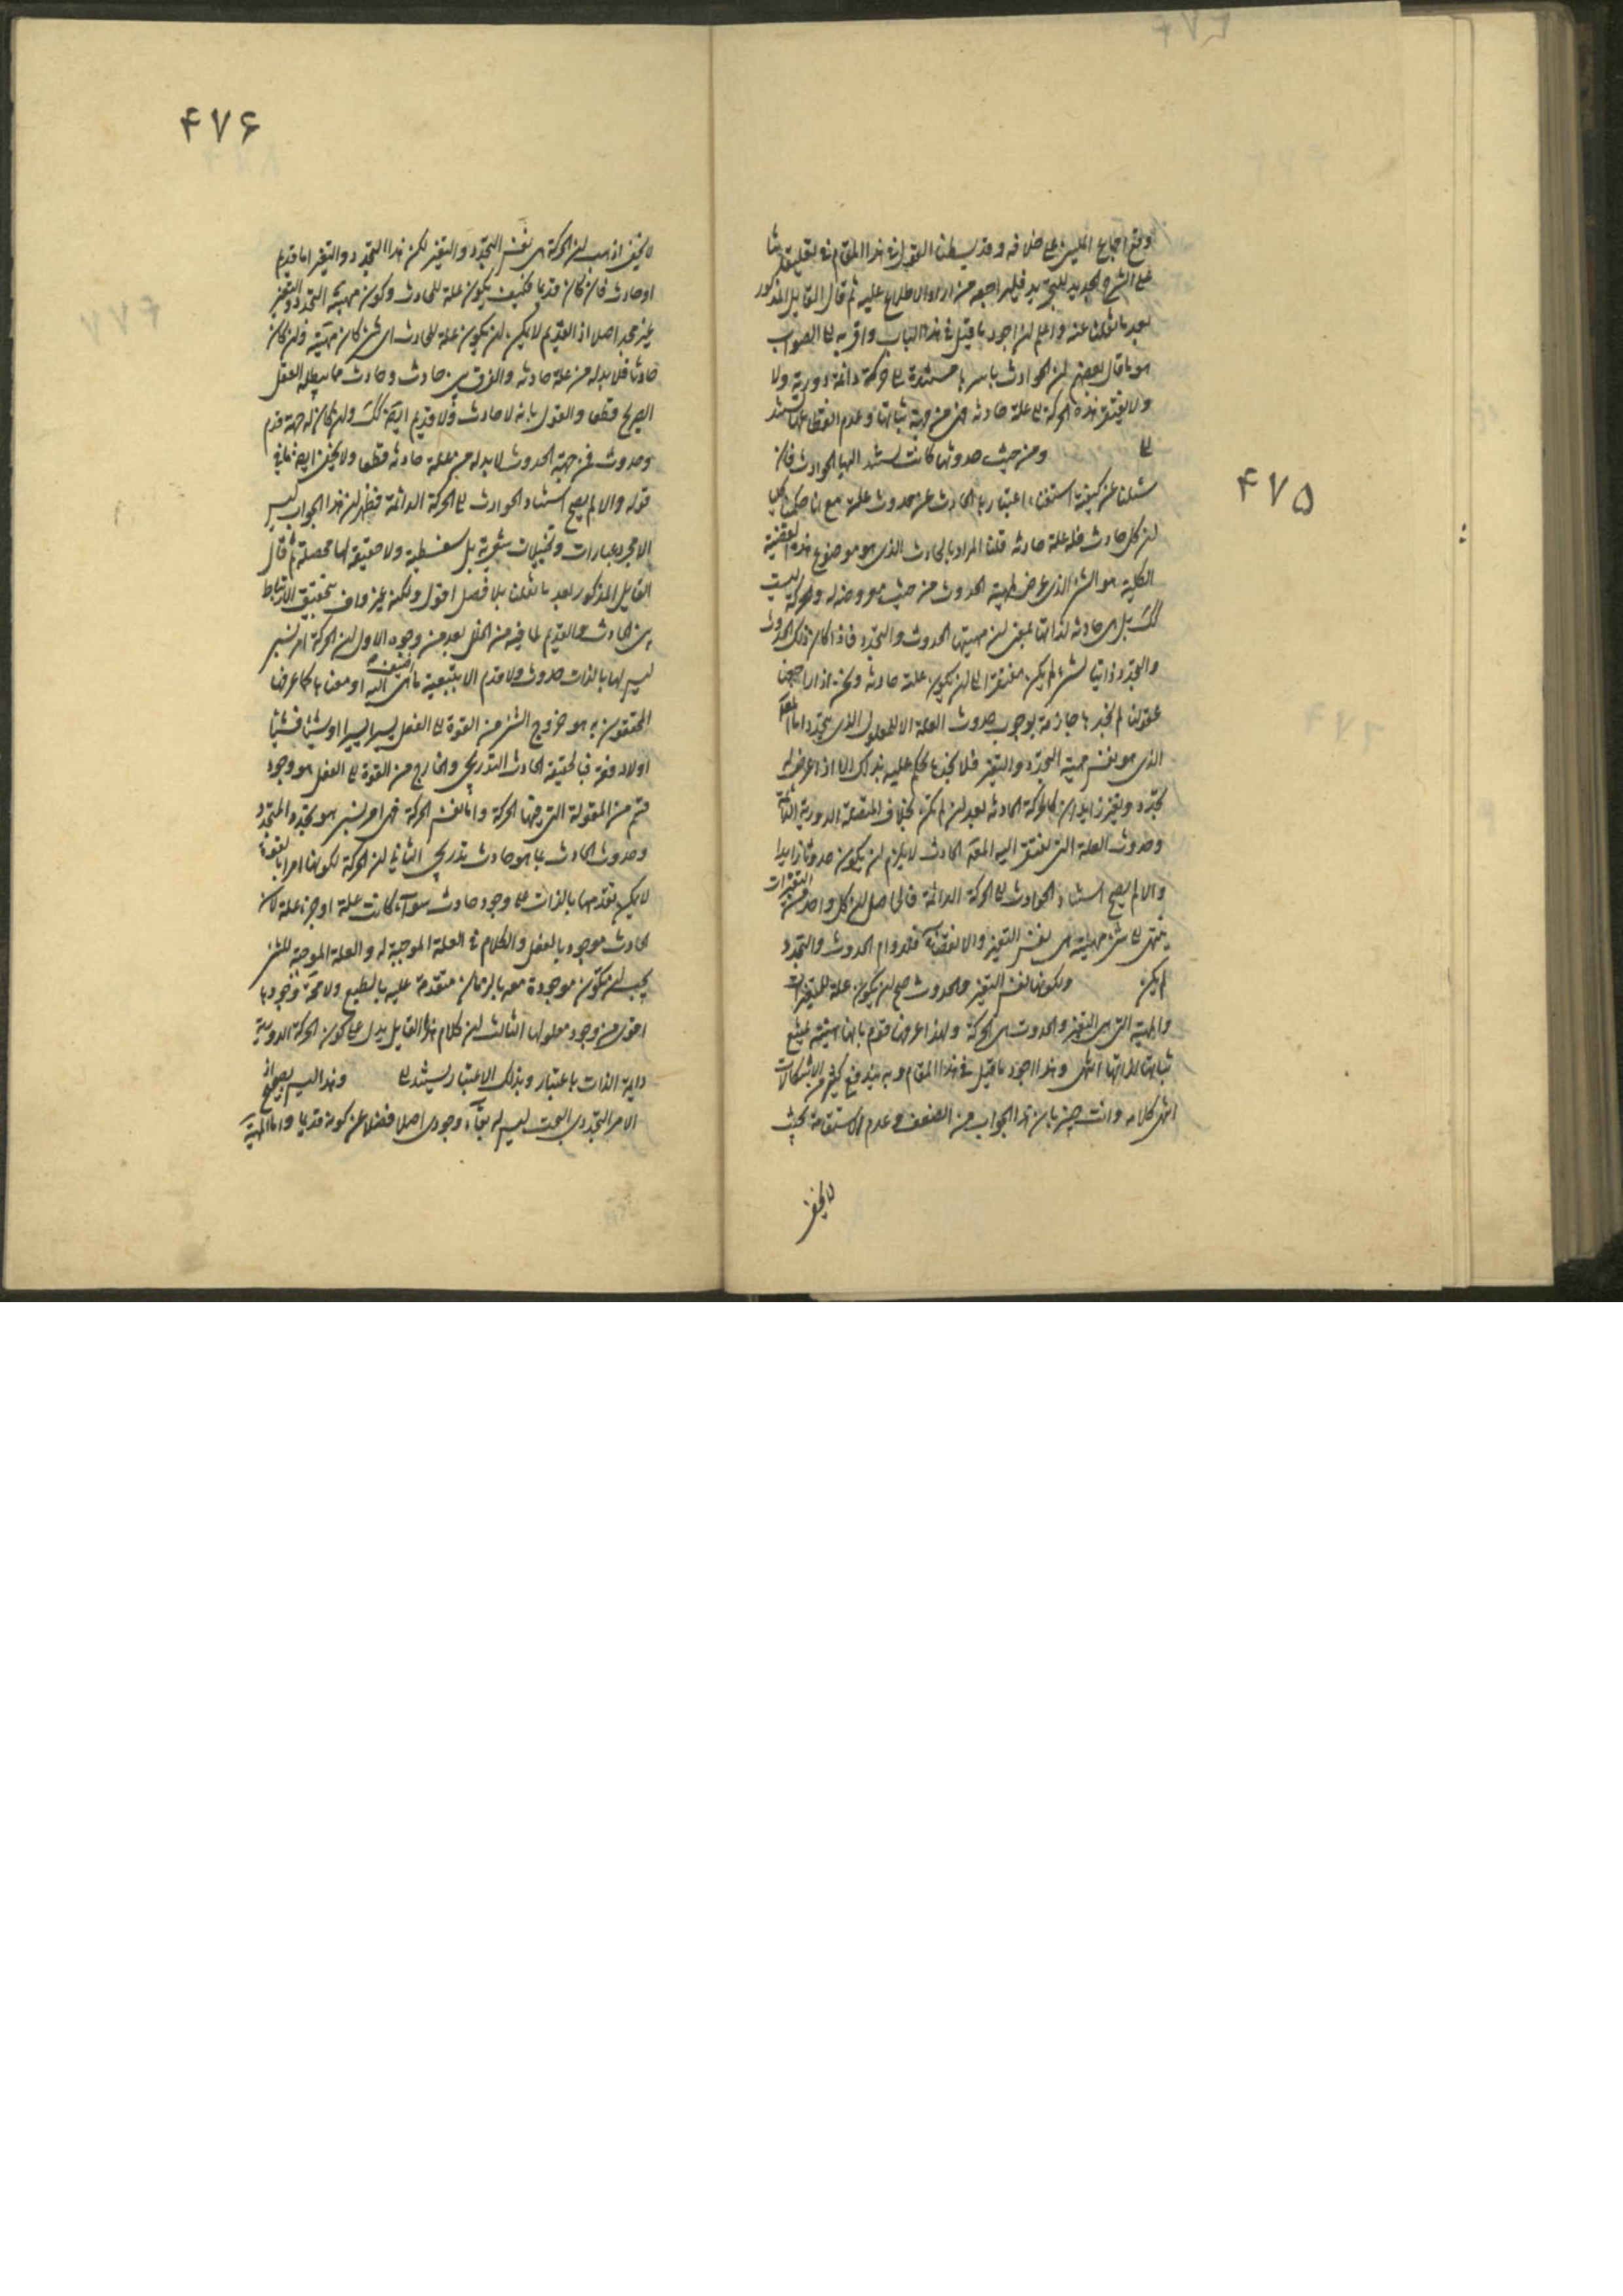 ۴۷۵
وقع اجماع المليين على خلافه وقد بسطنا القول في هذا المقام في تعليقاتنا
على الشرح الجديد للتجريد فليراجعه من اراد الاطلاع عليه ثم قال القايل المذكور
بعد ما نقلنا عنه واعلم ان اجود ما قيل في هذا الباب واقربه الى الصواب
هو ما قال بعضهم ان الحوادث باسرها مستندة الى حركة دائمة دورية ولا
ولا يفتقر هذه الحركة الى علة حادثة فهى من جهة ثباتها وعدم انقطاعها تستند
الى ومن حيث حدوثها كانت تستند اليها الحوادث فان
سئلنا عن كيفية استغناء اعتبارها الحادث عن حدوث علة مع انا حكمنا كليا
ان كل حادث فله علة حادثه قلنا المراد بالحادث الذى هو موضوع هذه القضية
الكلية هو الشئ الذى عرض لمهيته الحدوث من حيث هو معروض له والحركة ليست
كك بل هى حادثه لذاتها بمعنى ان مهيتها الحدوث والتجدد فاذا كان ذلك الحدوث
والتجدد ذاتيا لشئ لم يكن مفتقرا الى ان يكون علته حادثه ونحن اذا راجعنا
عقولنا لم نجدها جازمة بوجوب حدوث العلة الا للمعلول الذى يتجدد اما المعلول
الذى هو نفس مهية التجدد والتغير فلا نجدها تحكم عليه بذلك الا اذا عرض له
تجدد وتغير زايدان كالحركة الحادثه بعد ان لم تكن بخلاف المتصلة الدورية الدائمة
وحدوث العلة التى تفتقر اليه المعلول الحادث لا يلزم ان يكون حدوثا زايدا
والا لم يصح استناد الحوادث الى الحركة الدائمة فالحاصل ان كل واحد من التغيرات
ينتهى الى شئ مهيته هى نفس التغير والانقضاء فلدوام الحدوث والتجدد
لم يكن ولكونها نفس التغير والحدوث صح ان يكون علة للمتغيرات
والمهية التى هى التغير والحدوث هى الحركة ولهذا عرفها قوم بانها هيئة يمتنع
ثباتها لذاتها انتهى وهذا اجود ما قيل في هذا المقام وبه يندفع كثير من الاشكالات
انتهى كلامه وانت خبير بان هذا الجواب من الضعف وعدم الاستقامة بحيث
لا يخفى
۴۷۶
لا يخفى اذ هب ان الحركة هى نفس التجدد والتغير لكن هذا التجدد والتغير اما قديم
او حادث فان كان قديما فكيف يكون علة للحادث وكون مهيته التجدد والتغير
غير مجد اصلا اذ القديم لا يمكن ان يكون علة للحادث اى شئ كان مهيته وان كان
حادثا فلا بد له من علة حادثه والفرق بين حادث وحادث مما يبطله العقل
الصريح قطعا والقول بانه لا حادث ولا قديم ايضا كك ولو كان له جهة قدم
وحدوث فمن جهة الحدوث لا بد له من علة حادثه قطعا ولا يخفى ايضا ما في
قوله والا لم يصح استناد الحوادث الى الحركة الدائمة فظهر ان هذا الجواب ليس
الا مجرد عبارات وتخييلات شعرية بل سفسطية ولا حقيقة لها محصلة ثم قال
القايل المذكور بعد ما نقلنا بلا فصل اقول ولكنه غير واف بتحقيق الارتباط
بين الحادث والقديم لما فيه من الخلل بعد من وجوه الاول ان الحركة امر نسبى
ليس لها بالذات حدوث ولا قدم الا بتبعية ما اضيفت اليه او معناها كما عرفها
المحققون به هو خروج الشئ من القوة الى الفعل يسيرا يسيرا او شيئا فشيئا
او لا دفعة فبالحقيقة الحادث التدريجى والخارج من القوة الى الفعل هو وجود
قسم من المقولة التى فيها الحركة واما نفس الحركة فهى امر نسبى هو تجدد المتجدد
وحدوث الحادث بما هو حادث تدريجى الثانى ان الحركة لكونها امرا بالقوة
لا يمكن تقدمها بالذات على وجود حادث سواء كانت علة او جزء علة لان
الحادث موجود بالفعل والكلام في العلة الموجبة له والعلة الموجبة للشئ
يجب ان تكون موجودة معه بالزمان متقدمة عليه بالطبع ولا محالة وجودها
اقوى من وجود معلولها الثالث ان كلام هذا القايل يدل على كون الحركة الدورية
دايمة الذات باعتبار وبذلك الاعتبار يستند الى وهذا ليس بصحيح اذ
الامر التجددى البحت ليس له بقاء وجودى اصلا فضلا عن كونه قديما واما المهية